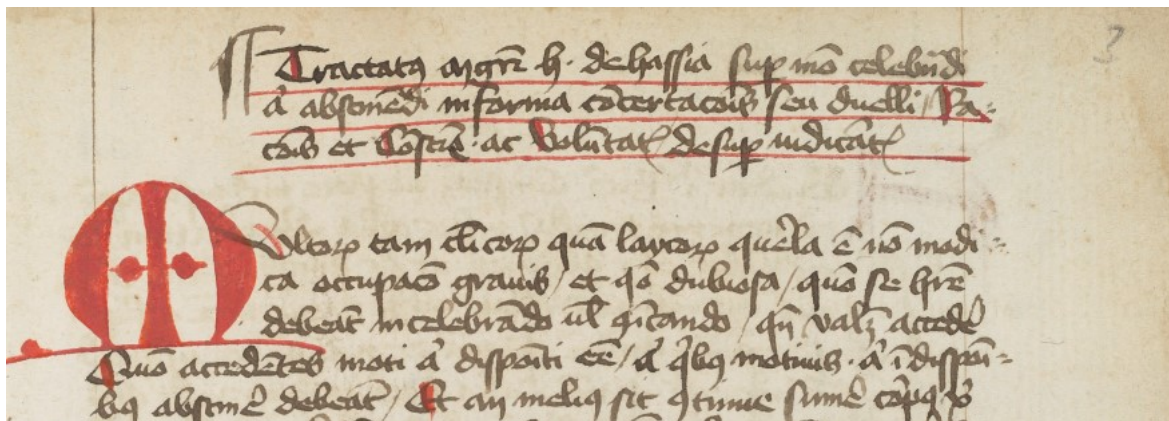 Tractatꝯ mgr̄i h. de hassia suꝑ mō celebrādi
a᷑ abstinēdi in forma cōcertacōis seu duelli / Ra-
cōis et Cōsciē. ac Volūtat᷑ desuꝑ iudicāt᷑
3
Multoꝝ tam cl̄icoꝝ quā laycoꝝ quēla ē nō modi-
ca occupacō grauis / et qō dubiosa / quō se hr̄e
debeāt in celebrādo ul̄ 9̄icando / qn̄ valꝫ accedē
Quō accedētes moti a᷑ dispoīti eē / a᷑ q̄bꝯ motiuis. a᷑ īdispoī-
bꝯ abstinē debeāt / Et an meliꝯ sit 9tinue sumē corpꝯ